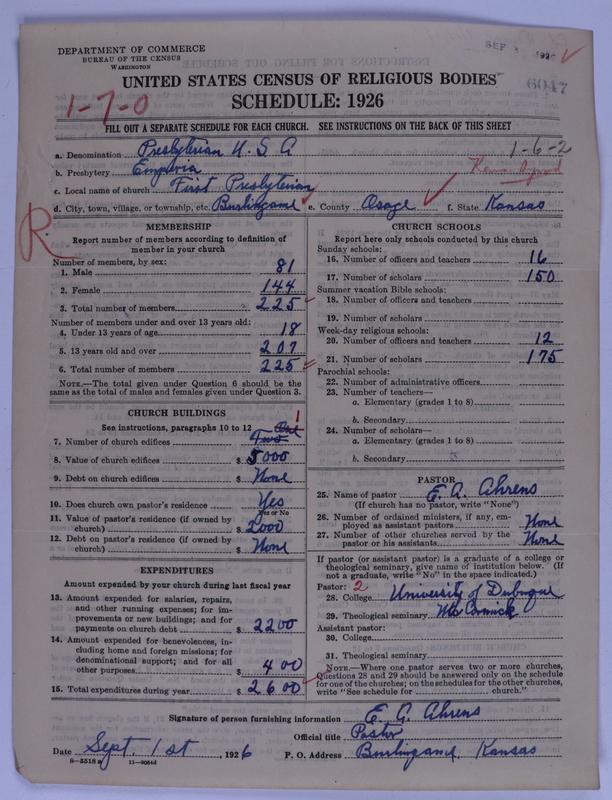 DEPARTMENT OF COMMERCE
BUREAU OF THE CENSUS
WASHINGTON
SEP 3 192
6047
UNITED STATES CENSUS OF RELIGIOUS BODIES
1-7-0
SCHEDULE: 1926
FILL OUT A SEPARATE SCHEDULE FOR EACH CHURCH. SEE INSTRUCTIONS ON THE BACK OF THIS SHEET
a. Denomination Presbyterian U.S.A 1-6-2
b. Presbytery Emporia
c. Local name of church First Presbyterian
d. City, town, village, or township, etc. Burlingame e. County Osage f. State Kansas
R
MEMBERSHIP
Report number of members according to definition of
member in your church
Number of members, by sex:
1. Male 81
2. Female 144
3. Total number of members 225
Number of members under and over 13 years old:
4. Under 13 years of age 18
5. 13 years old and over 207
6. Total number of members 225
NOTE.—The total given under Question 6 should be the
same as the total of males and females given under Question 3.
CHURCH BUILDINGS
See instructions, paragraphs 10 to 12
1
7. Number of church edifices Two
8. Value of church edifices $ 5000
9. Debt on church edifices $ None
10. Does church own pastor's residence Yes
Yes or No
11. Value of pastor's residence (if owned by
church) $ 2000
12. Debt on pastor's residence (if owned by
church) $ None
EXPENDITURES
Amount expended by your church during last fiscal year
13. Amount expended for salaries, repairs,
and other running expenses; for im-
provements or new buildings; and for
payments on church debt $ 2200
14. Amount expended for benevolences, in-
cluding home and foreign missions; for
denominational support; and for all
other purposes $ 400
15. Total expenditures during year $ 2600
CHURCH SCHOOLS
Report here only schools conducted by this church
Sunday schools:
16. Number of officers and teachers 16
17. Number of scholars 150
Summer vacation Bible schools:
18. Number of officers and teachers
19. Number of scholars
Week-day religious schools:
20. Number of officers and teachers 12
21. Number of scholars 175
Parochial schools:
22. Number of administrative officers
23. Number of teachers—
a. Elementary (grades 1 to 8)
b. Secondary
24. Number of scholars—
a. Elementary (grades 1 to 8)
b. Secondary
PASTOR
25. Name of pastor E. A. Ahrens
(If church has no pastor, write "None")
26. Number of ordained ministers, if any, em-
ployed as assistant pastors None
27. Number of other churches served by the
pastor or his assistants None
If pastor (or assistant pastor) is a graduate of a college or
theological seminary, give name of institution below. (If
not a graduate, write "No" in the space indicated.)
Pastor: 2
28. College University of Dubuque
29. Theological seminary McCormick
Assistant pastor:
30. College
31. Theological seminary
NOTE.—Where one pastor serves two or more churches,
Questions 28 and 29 should be answered only on the schedule
for one of the churches; on the schedules for the other churches,
write "See schedule for church."
Signature of person furnishing information E. A. Ahrens
Official title Pastor
Date Sept. 1st, 1926 P. O. Address Burlingame, Kansas